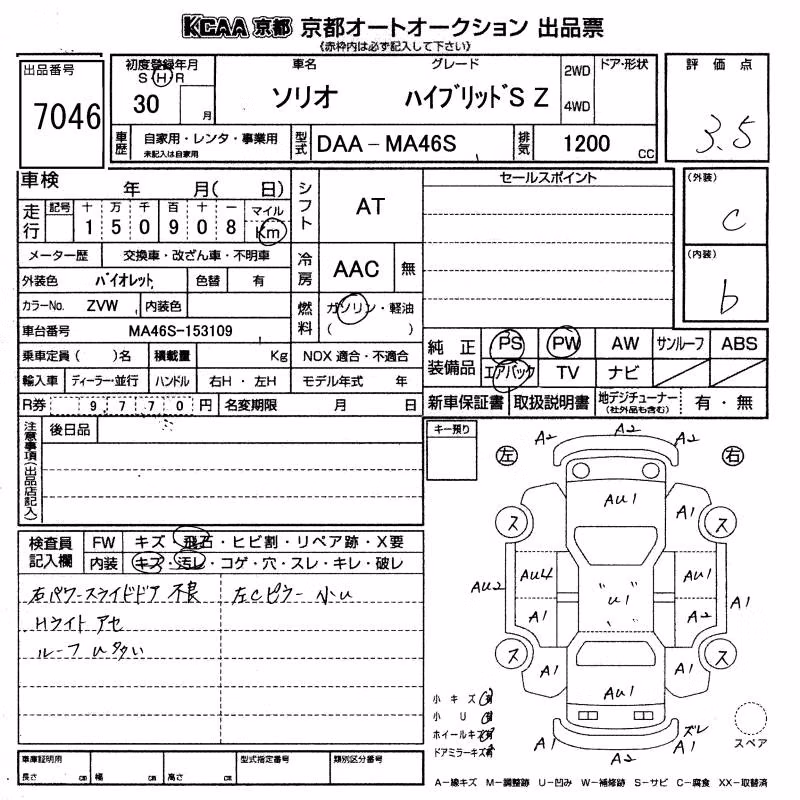 KCAA 京都 京都オートオークション 出品票
《赤枠内は必ず記入して下さい》
出品番号
7046
初度登録年月
S H R
30 月
車名
ソリオ
グレード
ハイブリッドS Z
2WD
4WD
ドア・形状
評価点
3.5
車歴
自家用・レンタ・事業用
未記入は自家用
型式
DAA-MA46S
排気
1200 CC
車検 年 月( 日)
走行
記号 十 万 千 百 十 一 マイル
1 5 0 9 0 8 Km
メーター歴 交換車・改ざん車・不明車
外装色 バイオレット 色替 有
カラーNo. ZVW 内装色
車台番号 MA46S-153109
乗車定員( )名 積載量 Kg
輸入車 ディーラー・並行 ハンドル 右H・左H
R券 9,770円 名変期限 月 日
シフト AT
冷房 AAC 無
燃料 ガソリン・軽油
( )
NOX 適合・不適合
モデル年式 年
セールスポイント
(外装)
C
(内装)
b
純正装備品
PS PW AW サンルーフ ABS
エアバック TV ナビ
新車保証書 取扱説明書 地デジチューナー(社外品も含む) 有・無
注意事項(出品店記入)
後日品
キー預り
左
右
検査員記入欄
FW キズ・飛石・ヒビ割・リペア跡・X要
内装 キズ・汚レ・コゲ・穴・スレ・キレ・破レ
右パワースライドドア 不良
左Cピラー 小U
Hライト アセ
ルーフ U多い
A2 A2 A2
AU1
A1 A1
ス ス
AU2 AU4 U1 AU1
A1 A2 A1
ス ス
A1 A1
AU1
A1 A2 A1 ズレ
小キズ 有
小U 有
ホイールキズ 有
ドアミラーキズ 有
スペア
車庫証明用
長さ cm 幅 cm 高さ cm
型式指定番号
類別区分番号
A-線キズ M-調整跡 U-凹み W-補修跡 S-サビ C-腐食 XX-取替済